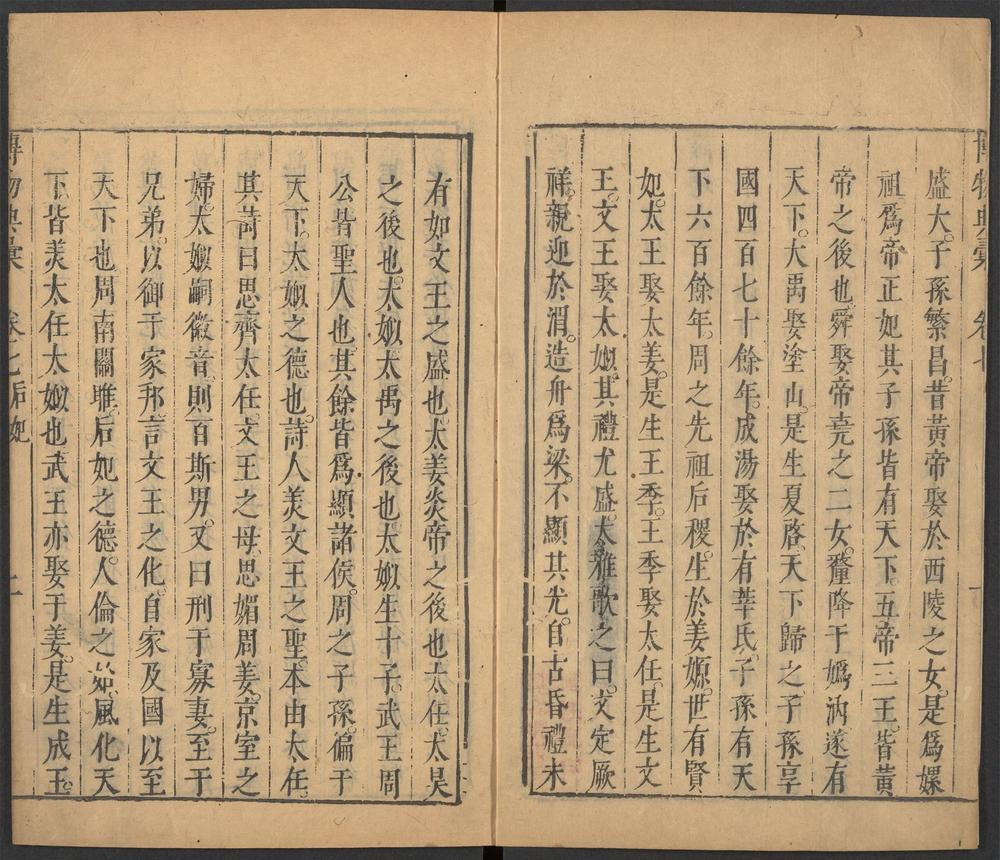 博物典彙 卷七
盛大。子孫繁昌。昔黃帝娶於西陵之女。是爲嫘
祖爲帝正妃其子孫皆有天下。五帝三王。皆黃
帝之後也。舜娶帝堯之二女。釐降于嬀汭遂有
天下。大禹娶塗山。是生夏啓。天下歸之。子孫享
國四百七十餘年。成湯娶於有莘氏。子孫有天
下六百餘年。周之先祖后稷。生於姜嫄。世有賢
妃。太王娶太姜。是生王季。王季娶太任。是生文
王。文王娶太姒。其禮尤盛。太雅歌之曰。文定厥
祥。親迎於渭。造舟爲梁。不顯其光。自古昏禮未
有如文王之盛也。太姜炎帝之後也太任太昊
之後也。太姒太禹之後也。太姒生十子。武王周
公皆聖人也。其餘皆爲顯諸侯。周之子孫。偏于
天下。太姒之德也。詩人美文王之聖。本由太任。
其詩曰思齊太任。文王之母。思媚周姜。京室之
婦。太姒嗣徽音。則百斯男。又曰刑于寡妻。至于
兄弟。以御于家邦。言文王之化。自家及國以至
天下也周南關雎。后妃之德。人倫之始。風化天
下。皆美太任太姒也。武王亦娶于姜。是生成王。
博物典彙 卷七后妃 二